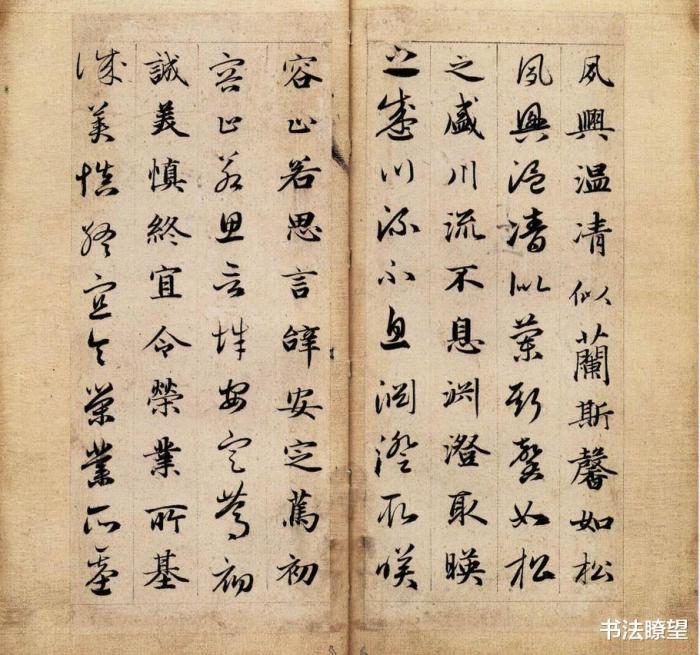 夙興温凊似蘭斯馨如松
夙興温清似蘭斯馨如松
之盛川流不息渊澄取暎
之盛川流不息渊澄取暎
容止若思言辝安定篤初
容止若思言辝安定篤初
誠美慎終宜令榮業所基
誠美慎終宜令榮業所基
书法瞭望